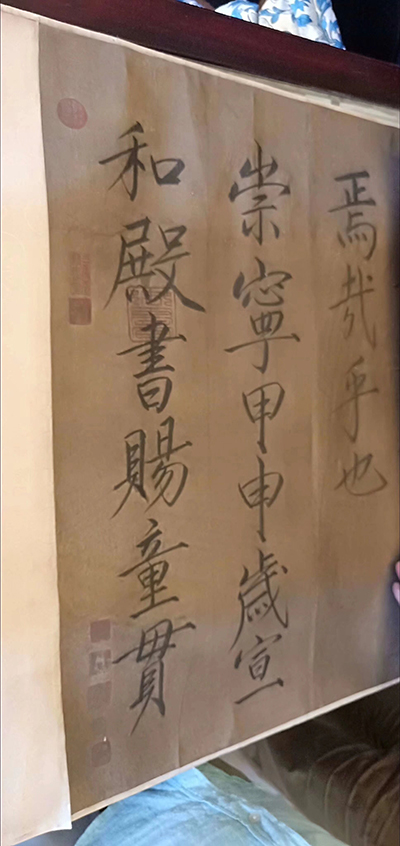 焉哉乎也
崇寧甲申歳宣
和殿書賜童貫